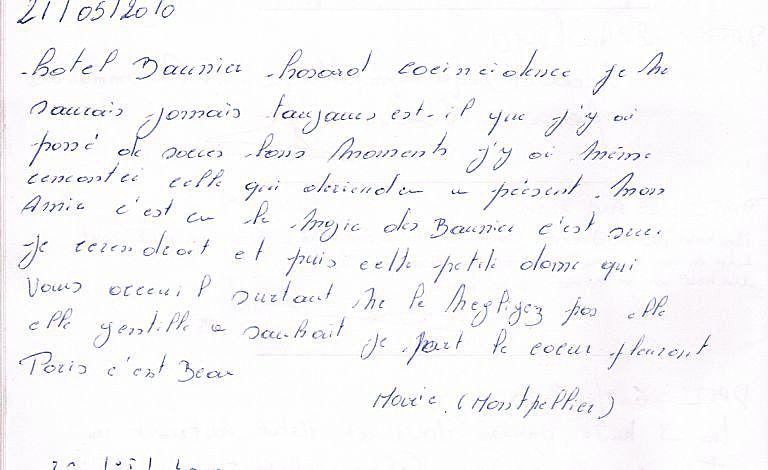 21/05/2010
hotel Baunier hasard coeinciolence je ne
saurais jamais toujours est-il que j'y ai
passé de bons moments j'y ai même
rencontré celle qui deviendra a présent mon
Amie c'est la magie des Baunier c'est sur
je reviendrait et puis cette petite dame qui
Vous acceuil surtout ne le négligez pas elle
elle gentille a souhait je part le coeur pleurant
Paris c'est Beau
Marie (Montpellier)